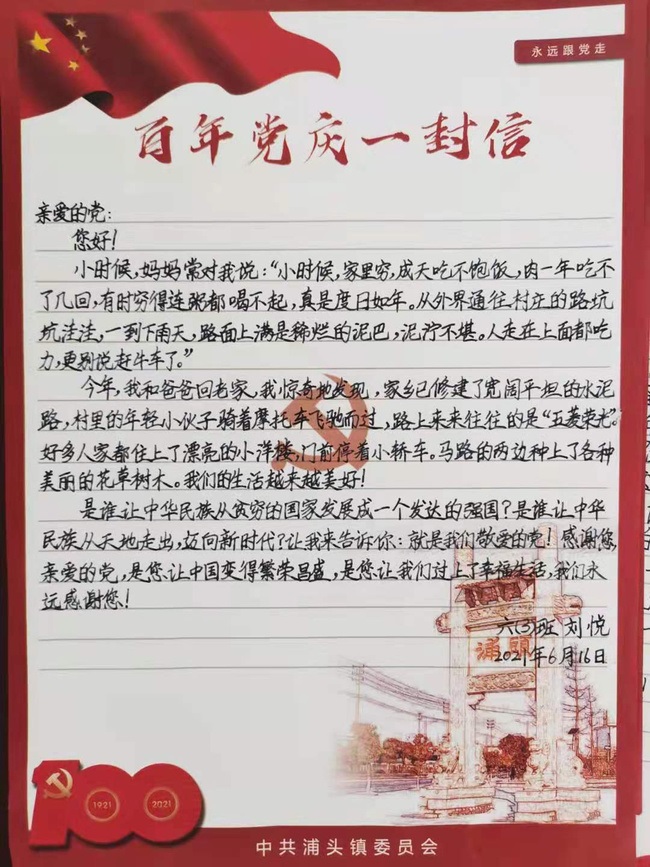 永远跟党走
百年党庆一封信
亲爱的党：
您好！
小时候，妈妈常对我说：“小时候，家里穷，成天吃不饱饭，肉一年吃不
了几回，有时穷得连粥都喝不起，真是度日如年。从外界通往村庄的路坑
坑洼洼，一到下雨天，路面上满是稀烂的泥巴，泥泞不堪。人走在上面都吃
力，更别说赶牛车了。”
今年，我和爸爸回老家，我惊奇地发现，家乡已修建了宽阔平坦的水泥
路，村里的年轻小伙子骑着摩托车飞驰而过，路上来来往往的是“五菱荣光”。
好多人家都住上了漂亮的小洋楼，门前停着小轿车。马路的两边种上了各种
美丽的花草树木。我们的生活越来越美好！
是谁让中华民族从贫穷的国家发展成一个发达的强国？是谁让中华
民族从天地走出，迈向新时代？让我来告诉你：就是我们敬爱的党！感谢您，
亲爱的党，是您让中国变得繁荣昌盛，是您让我们过上了幸福生活，我们永
远感谢您！
六(3)班 刘悦
2021年6月16日
浦頭
100
1921 2021
中共浦头镇委员会